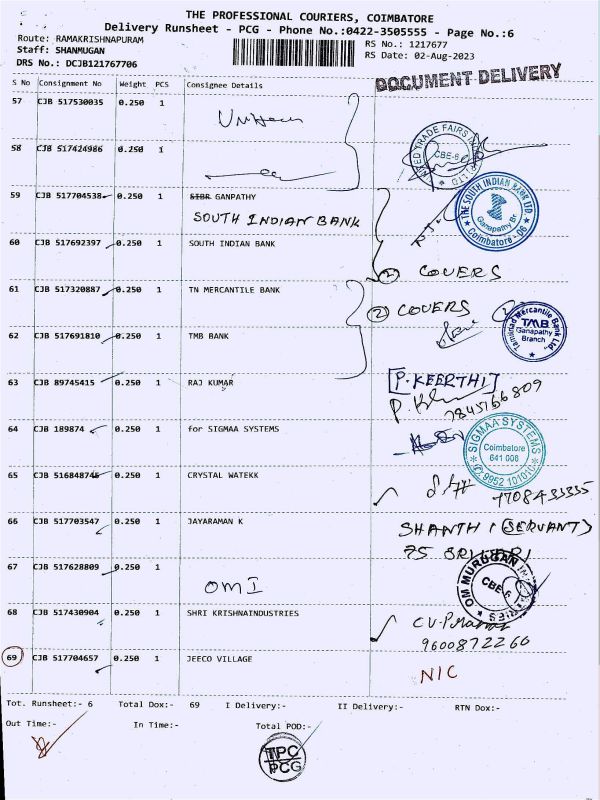 THE PROFESSIONAL COURIERS, COIMBATORE
Delivery Runsheet - PCG - Phone No.:0422-3505555 - Page No.:6
Route: RAMAKRISHNAPURAM
RS No.: 1217677
Staff: SHANMUGAN
RS Date: 02-Aug-2023
DRS No.: DCJB121767706
DOCUMENT DELIVERY
S No Consignment No Weight PCS Consignee Details
57 CJB 517530035 0.250 1
58 CJB 517424986 0.250 1
TRADE FAIRS
CBE-6
59 CJB 517704538 0.250 1 SIBR GANPATHY
SOUTH INDIAN BANK
THE SOUTH INDIAN BANK LTD.
Ganapathy Br.
Coimbatore - 06
60 CJB 517692397 0.250 1 SOUTH INDIAN BANK
2 COVERS
61 CJB 517320887 0.250 1 TN MERCANTILE BANK
2 COVERS
Tamilnad Mercantile Bank Ltd.
TMB
Ganapathy
Branch
62 CJB 517691810 0.250 1 TMB BANK
63 CJB 89745415 0.250 1 RAJ KUMAR
[P.KEERTHI]
7845166809
64 CJB 189874 0.250 1 for SIGMAA SYSTEMS
SIGMAA SYSTEMS
Coimbatore
641 006
9952 101010
65 CJB 516848745 0.250 1 CRYSTAL WATEKK
7708433335
66 CJB 517703547 0.250 1 JAYARAMAN K
SHANTHI (SERVANT)
75
67 CJB 517628809 0.250 1
OMI
OM MURUGAN
CBE-6
68 CJB 517430904 0.250 1 SHRI KRISHNAINDUSTRIES
9600872260
69 CJB 517704657 0.250 1 JEECO VILLAGE
NIC
Tot. Runsheet:- 6 Total Dox:- 69 I Delivery:- II Delivery:- RTN Dox:-
Out Time:- In Time:- Total POD:-
TPC
PCG